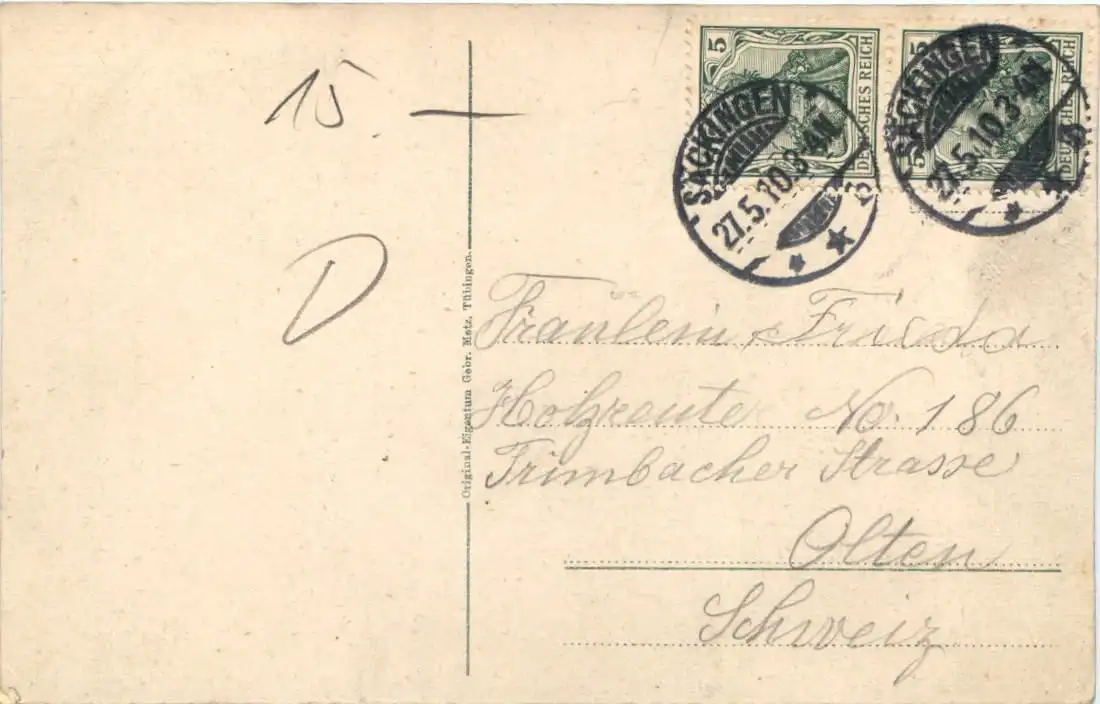 15.—
D
Original-Eigentum Gebr. Metz, Tübingen.
5 DEUTSCHES REICH
5 DEUTSCHES REICH
SÄCKINGEN
27.5.10.3-4N.
SÄCKINGEN
27.5.10.3-4N.
Fräulein Frieda
Holzreuter No. 186
Trimbacher Strasse
Olten
Schweiz